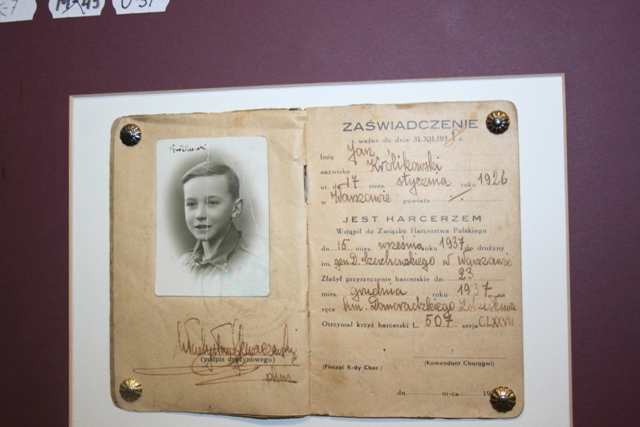 M-45
0-31
Królikowski
(podpis drużynowego)
phm.
ZAŚWIADCZENIE
ważne do dnia 31.XII.193 r.
Imię Jan
nazwisko Królikowski
ur. dn. 17 mies. stycznia roku 1926
w Warszawie powiatu
JEST HARCERZEM
Wstąpił do Związku Harcerstwa Polskiego
dn. 15 mies. września roku 1937 do drużyny
im. gen. D. Czachowskiego w Warszawie
Złożył przyrzeczenie harcerskie dn. 23
mies. grudnia roku 1937 na
ręce hm. Domoradzkiego
Otrzymał krzyż harcerski L. 507 serja CLXXVII
(Pieczęć K-dy Chor.)
(Komendant Chorągwi)
dn. m-ca 19